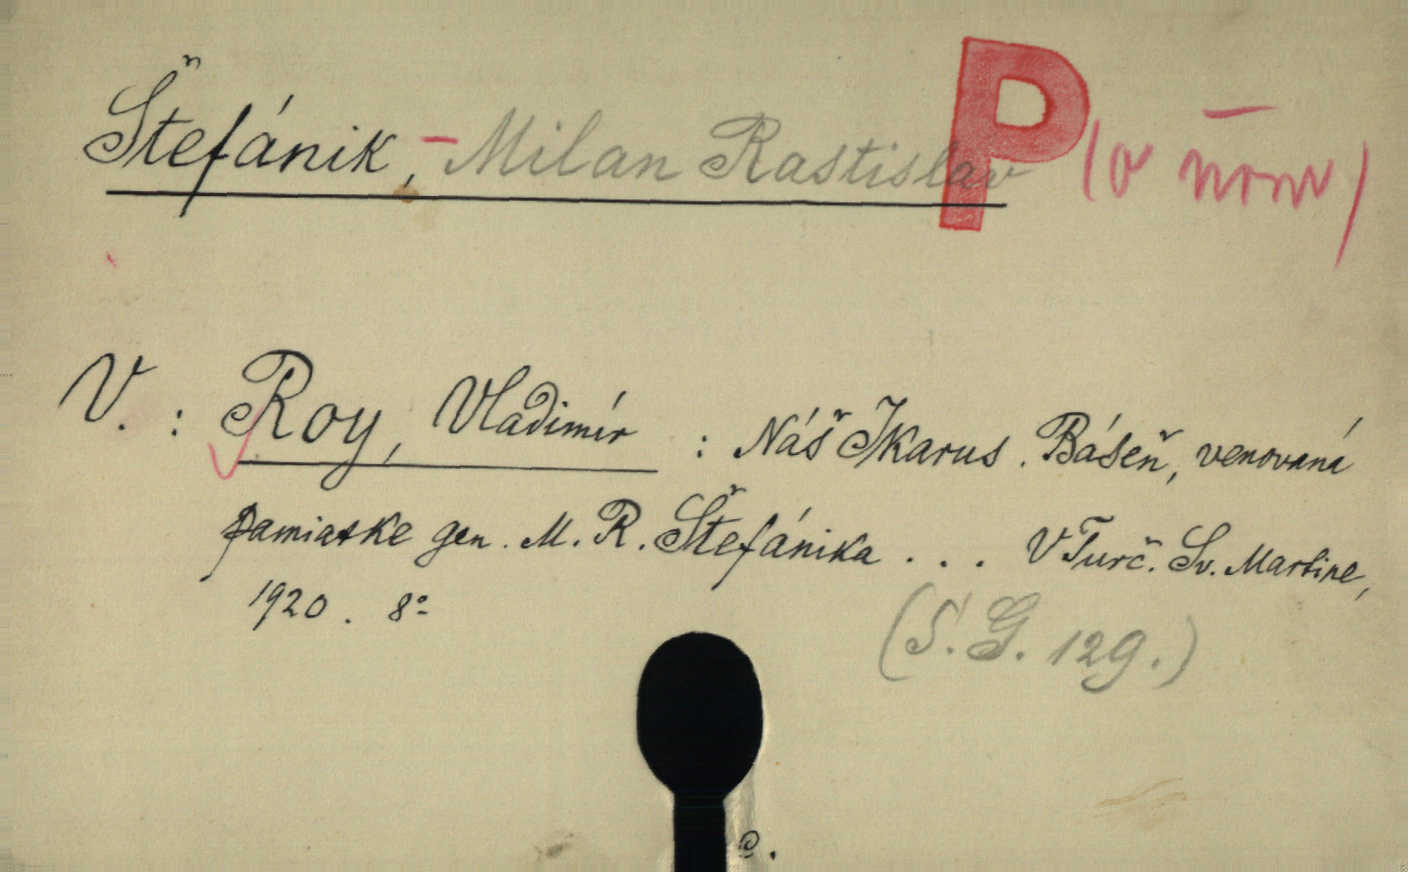 Štefánik, - Milan Rastislav P (o ňom)
V. : Roy, Vladimír : Náš Ikarus. Báseň, venovaná
pamiatke gen. M. R. Štefánika ... V Turč. Sv. Martine,
1920. 8°
(S. G. 129.)